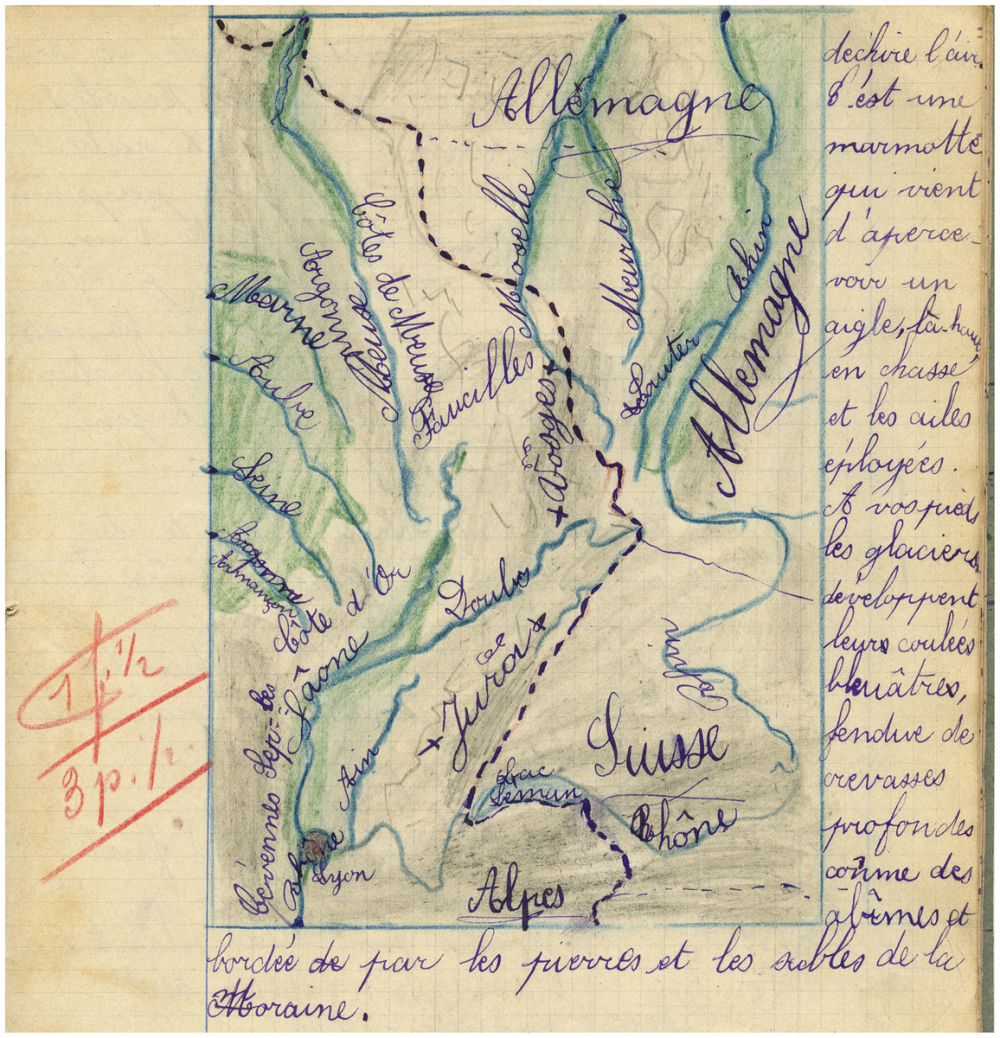 Allemagne
Moselle
Meurthe
Rhin
Allemagne
Côtes de Meuse
Argonne
Meuse
Marne
Faucilles
Aube
Vosges
Lauter
Seine
Armançon
Côte d'Or
Doubs
Saône
Jura
Ain
Rhin
Suisse
Lac
Léman
Rhône
Cévennes Sep-les
Rhône
Lyon
Alpes
1 p. 1/2
3 p. 1/2
déchire l'air.
C'est une
marmotte
qui vient
d'aperce-
voir un
aigle, là-haut
en chasse
et les ailes
éployées.
A vos pieds
les glaciers
développent
leurs coulées
bleuâtres,
fendue de
crevasses
profondes
comme des
abîmes et
bordée de par les pierres et les sables de la
Moraine.